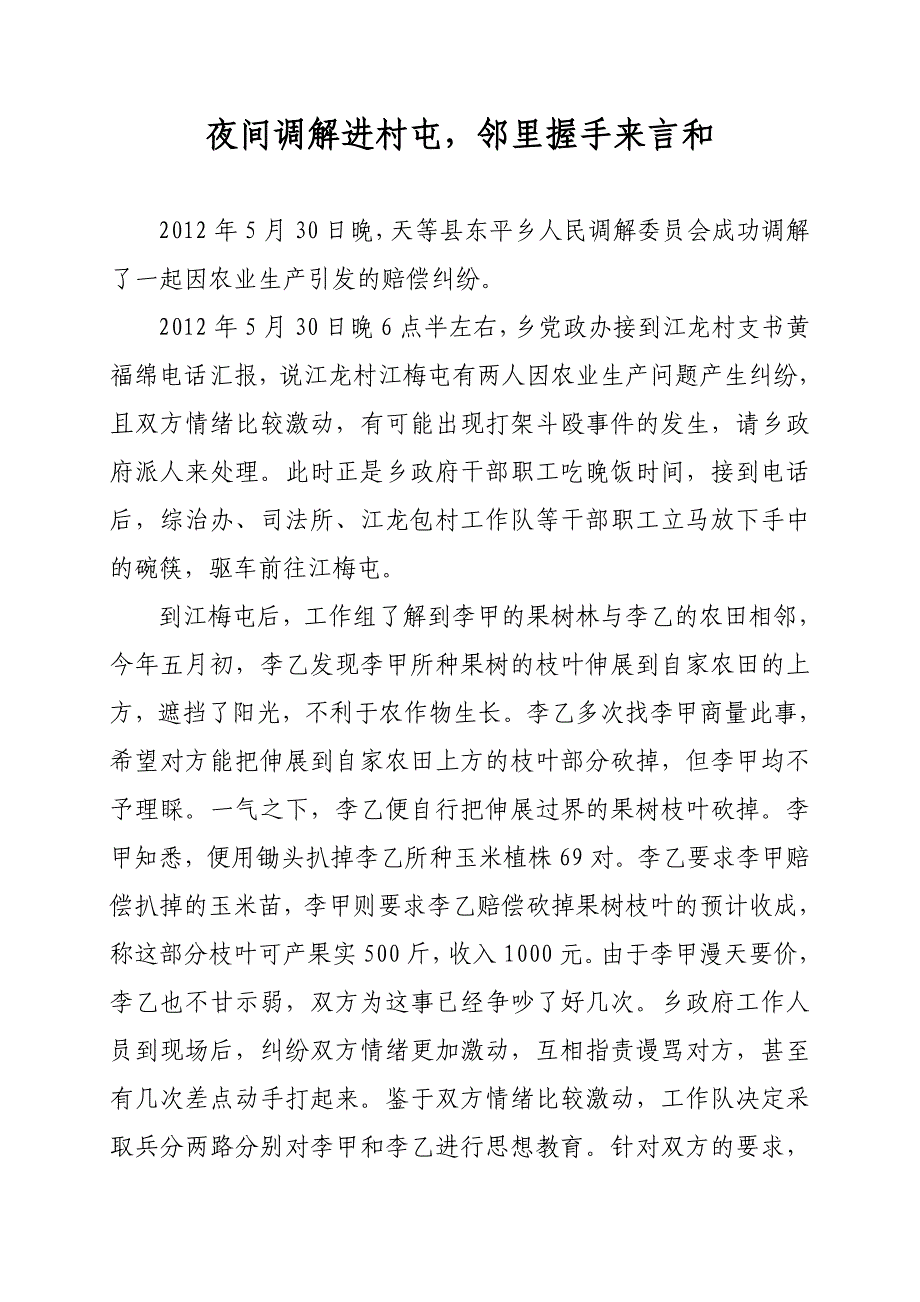 夜间调解进村屯，邻里握手来言和
2012 年 5 月 30 日晚，天等县东平乡人民调解委员会成功调解
了一起因农业生产引发的赔偿纠纷。
2012 年 5 月 30 日晚 6 点半左右，乡党政办接到江龙村支书黄
福绵电话汇报，说江龙村江梅屯有两人因农业生产问题产生纠纷，
且双方情绪比较激动，有可能出现打架斗殴事件的发生，请乡政
府派人来处理。此时正是乡政府干部职工吃晚饭时间，接到电话
后，综治办、司法所、江龙包村工作队等干部职工立马放下手中
的碗筷，驱车前往江梅屯。
到江梅屯后，工作组了解到李甲的果树林与李乙的农田相邻，
今年五月初，李乙发现李甲所种果树的枝叶伸展到自家农田的上
方，遮挡了阳光，不利于农作物生长。李乙多次找李甲商量此事，
希望对方能把伸展到自家农田上方的枝叶部分砍掉，但李甲均不
予理睬。一气之下，李乙便自行把伸展过界的果树枝叶砍掉。李
甲知悉，便用锄头扒掉李乙所种玉米植株 69 对。李乙要求李甲赔
偿扒掉的玉米苗，李甲则要求李乙赔偿砍掉果树枝叶的预计收成，
称这部分枝叶可产果实 500 斤，收入 1000 元。由于李甲漫天要价，
李乙也不甘示弱，双方为这事已经争吵了好几次。乡政府工作人
员到现场后，纠纷双方情绪更加激动，互相指责谩骂对方，甚至
有几次差点动手打起来。鉴于双方情绪比较激动，工作队决定采
取兵分两路分别对李甲和李乙进行思想教育。针对双方的要求，